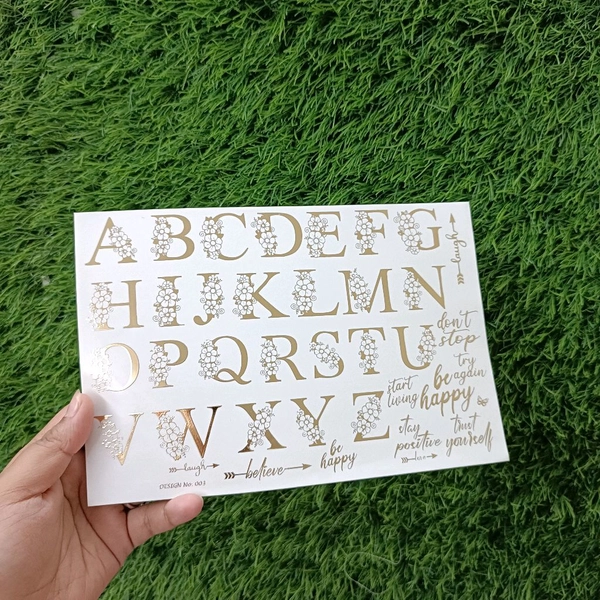 A B C D E F G
laugh
H I J K L M N
don't
stop
O P Q R S T U
try
again
start
living
be
happy
V W X Y Z
stay
positive
trust
yourself
love
laugh
believe
be
happy
DESIGN No. 003